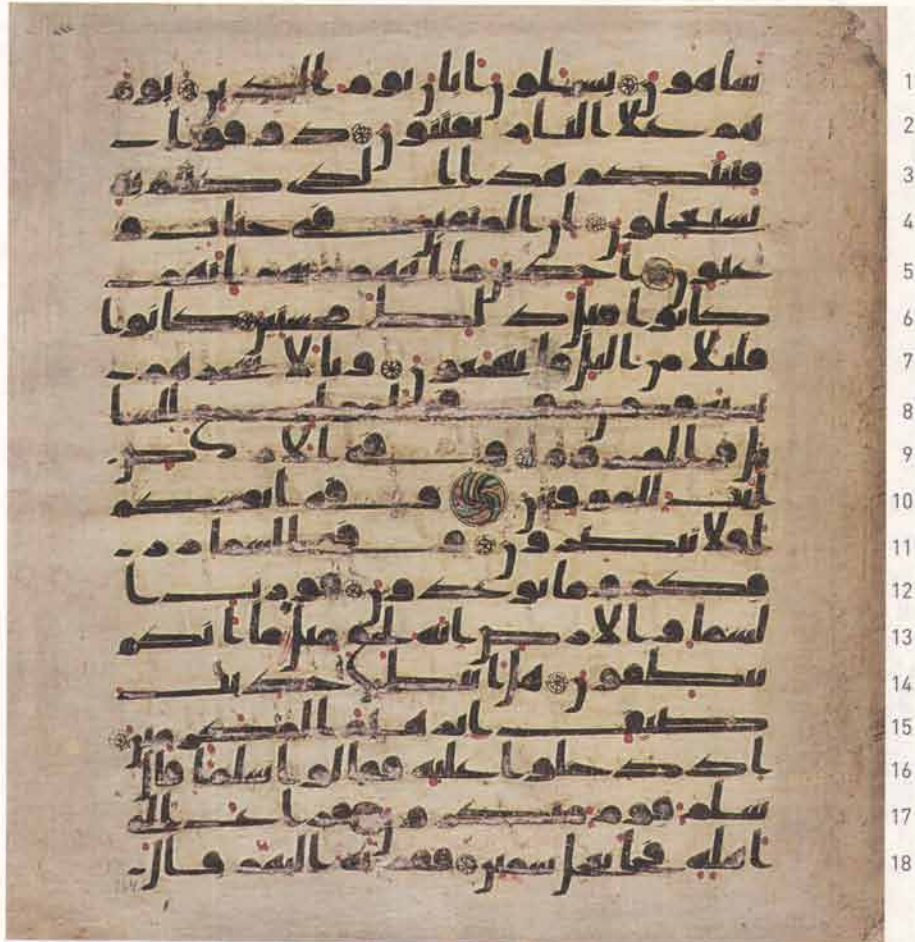 ساهون يسلون ايان يوم الدين يوم 1
هم على النار يفتنون ذوقوا 2
فتنتكم هذا الذي كنتم به 3
تستعجلون ان المتقين في جنات و 4
عيون اخذين ما اتيهم ربهم انهم 5
كانوا قبل ذلك محسنين كانوا 6
قليلا من اليل ما يهجعون وبالاسحر هم 7
يستغفرون وفي للسا 8
يل والمحروم وفي الارض 9
ايت للموقنين وفي انفسكم 10
افلا تبصرون وفي السما ر 11
زقكم وما توعدون فورب ا 12
لسما والارض انه لحق مثل ما انكم 13
تنطقون هل اتيك حديث 14
ضيف ابرهيم المكرمين 15
اذ دخلوا عليه فقالوا سلما قال 16
سلم قوم منكرون فراغ الى 17
اهله فجا بعجل سمين فقربه اليهم قال 18